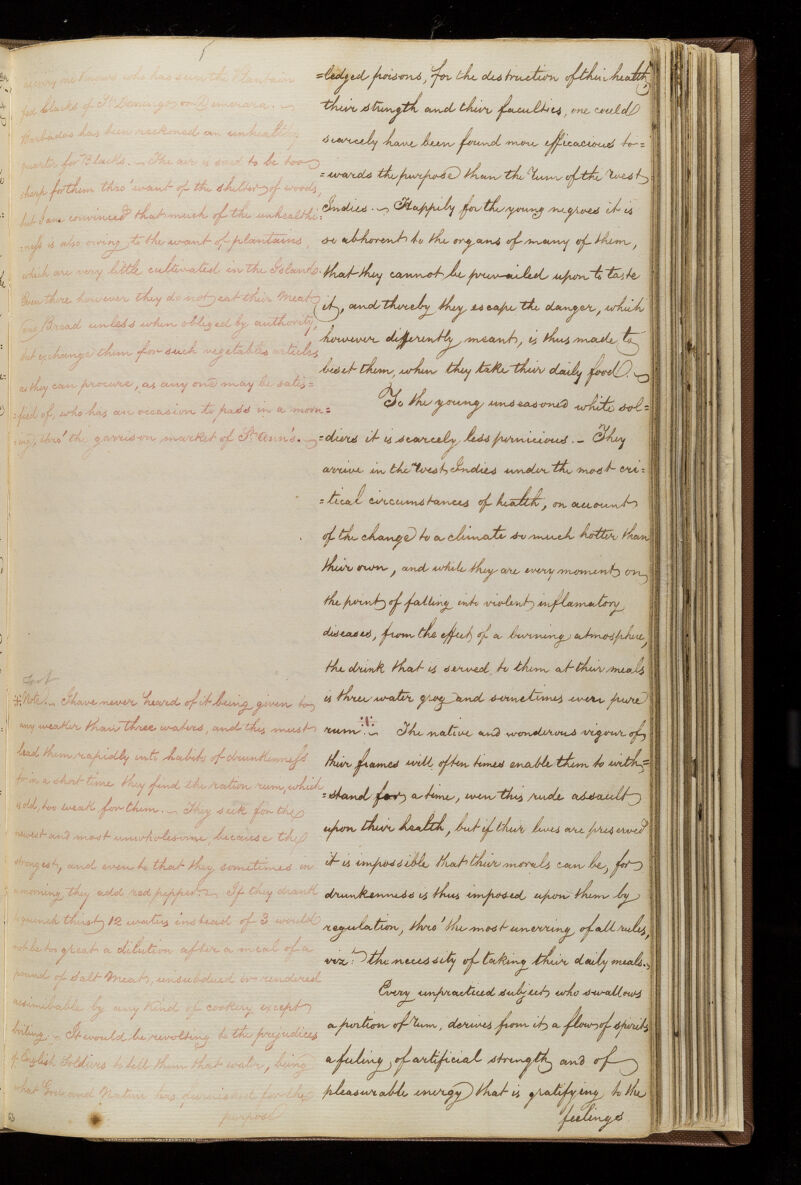 5
every one knows who has seen the Plantain
fed blacks of St. Domingo or Demerara. ~
Barbados has been reckoned an unhealthy
quarter for Blacks. ~ The air is said to be too
sharp for them thro' want of the shelter of woods,
but I am convinced that much of the unhealthi=
=ness is also owing to the want of plantains,
which are very little cultivated in the Island.
Even there however they do not eat their Meat
or Bread unless when obliged by authority,
but exchange them for such vegetable articles
as they can procure, as any one may be satis=
=fied of, who has an occasion to pass in a morn=
=ing, thro' the garrison market of St. Ann's. ~
Note. ~ I have never heard of it being given to
any weaker than three waters, and this must
lead them rapidly into habits of drunkenness
for in a short time they find the ration rum, which
is old, too weak for them. ~ They seek for the
newest and most unwholesome because the
strongest, and even to that they sometimes in
a morning they add red pepper. ~ If they drank
to quench thirst, 12 waters instead of 3 would
not be too great a dilution after a meal of a
pound of Salt Meat, unsubdued or rendered
assimilable by any kind of cookery except
boiling. ~ It would be revolting to the prejudices
of English Soldiers to tell them that water, being
what God and Nature has furnished for the
purpose
=ledged poisons, for the destruction of their health,
their strength and their faculties, one could
scarcely have been found more efficacious to=
=wards the purpose than the rum of the West
Indies. ~ Happily for the young negroes it is
so abhorent to the organs of many of them,
that they cannot be prevailed upon to taste
it, and thereby they escape the danger, which
however differently meant, is thus made to
beset them, when they take their daily food. ~
To the young unseasoned white sol=
=diers it is scarcely less pernicious. ~ They
arrive in the West Indies under the most cri=
=tical circumstances of health, on account
of the change to a climate so much hotter than
their own, and while they are every moment on
the point of falling into violent inflamatory
diseases, from the effect of a burning atmosphere,
the drink that is served to them at their meals
is three water grog and sometimes even pure
rum. ~ The native and wonderous vigour of
their frames will often times enable them to with=
=stand for a time, even this rude assault
upon their health, but if their lives are preserved
it is impossible that their morals can be, for
drunkenness is thus imposed upon them by
regulation, thro' the most unerring of all rules,
viz: the necessity of taking their daily meals. ~
Every unpracticed subject who swallows
a portion of rum, derives from it a flow of spirits
a feeling of artificial strength and of
pleasurable energy that is gratifying to the
feelings